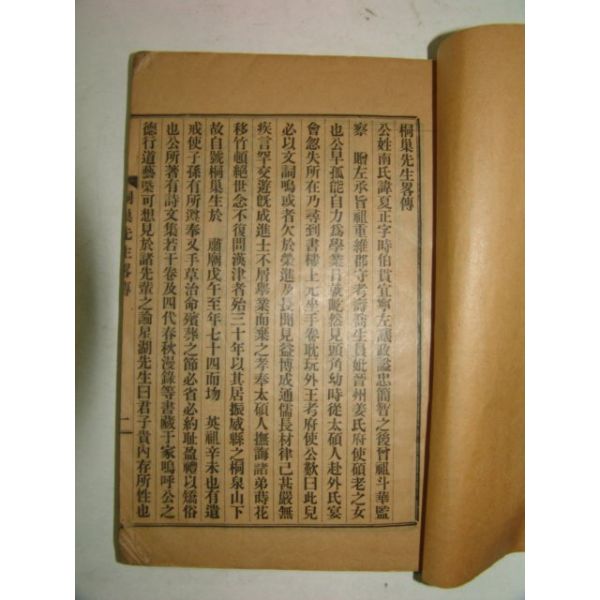 桐巢先生畧傳
公姓南氏諱夏正字時伯貫宜寧左議政諡忠簡智之後曾祖斗華監
察 贈左承旨祖重維郡守考壽喬生員妣晉州姜氏府使碩老之女
也公早孤能自力爲學業日就屹然見頭角幼時從太碩人赴外氏宴
會忽失所在乃尋到書樓上兀坐手卷耽玩外王考府使公歎曰此兒
必以文詞鳴或者欠於榮進及長聞見益博成通儒長材律己甚嚴無
疾言罕交遊旣成進士不屑擧業而棄之孝奉太碩人撫誨諸弟蒔花
移竹頓絕世念不復問漢津者殆三十年以其居振威縣之桐泉山下
故自號桐巢生於 肅廟戊午至年七十四而圽 英祖辛未也有遺
戒使子孫有所遵奉又手草治命殯葬之節必省必約耻盈禮以矯俗
也公所著有詩文集若干卷及四代春秋漫錄等書藏于家嗚呼公之
德行道藝槩可想見於諸先輩之論星湖先生曰君子貴內存所性也
桐巢先生畧傳
一